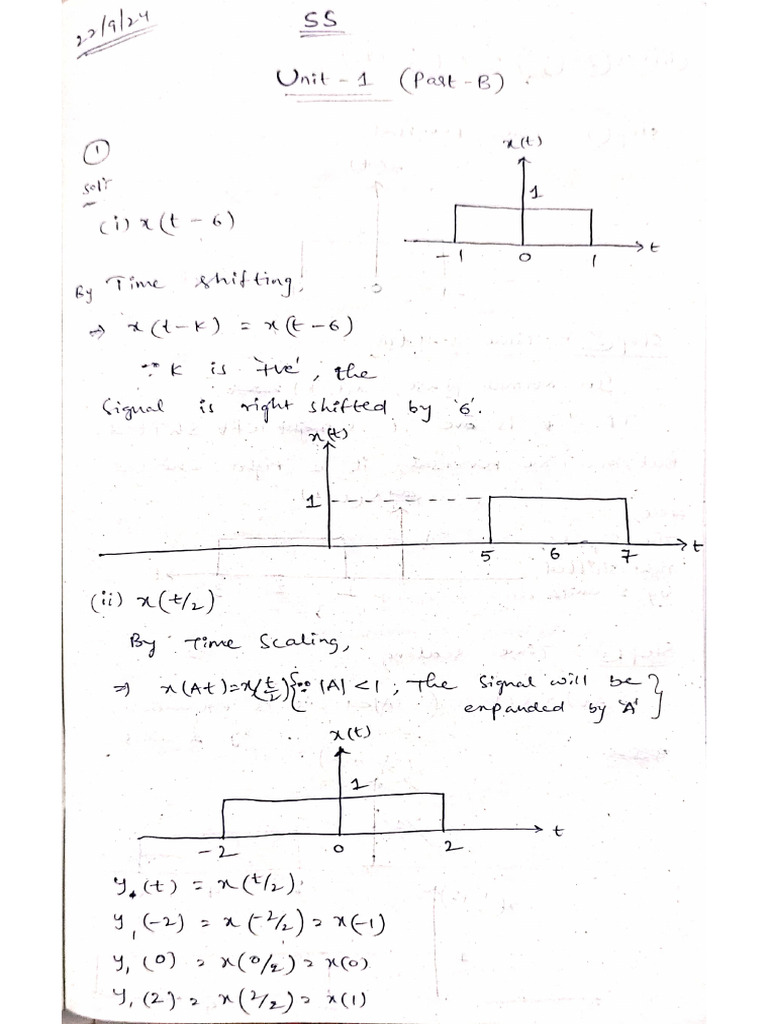 22/9/24
SS
Unit - 1 (Part-B).
①
Sol:
x(t)
1
-1 0 1 t
(i) x(t - 6)
By Time shifting,
⇒ x(t-K) = x(t-6)
∵ K is '+ve', the
signal is right shifted by '6'.
x(t)
1
5 6 7 t
(ii) x(t/2)
By Time Scaling,
⇒ x(At) = x(t/2) {∵ |A| < 1, The signal will be
expanded by 'A'}
x(t)
1
-2 0 2 t
y₁(t) = x(t/2)
y₁(-2) = x(-2/2) = x(-1)
y₁(0) = x(0/2) = x(0)
y₁(2) = x(2/2) = x(1)